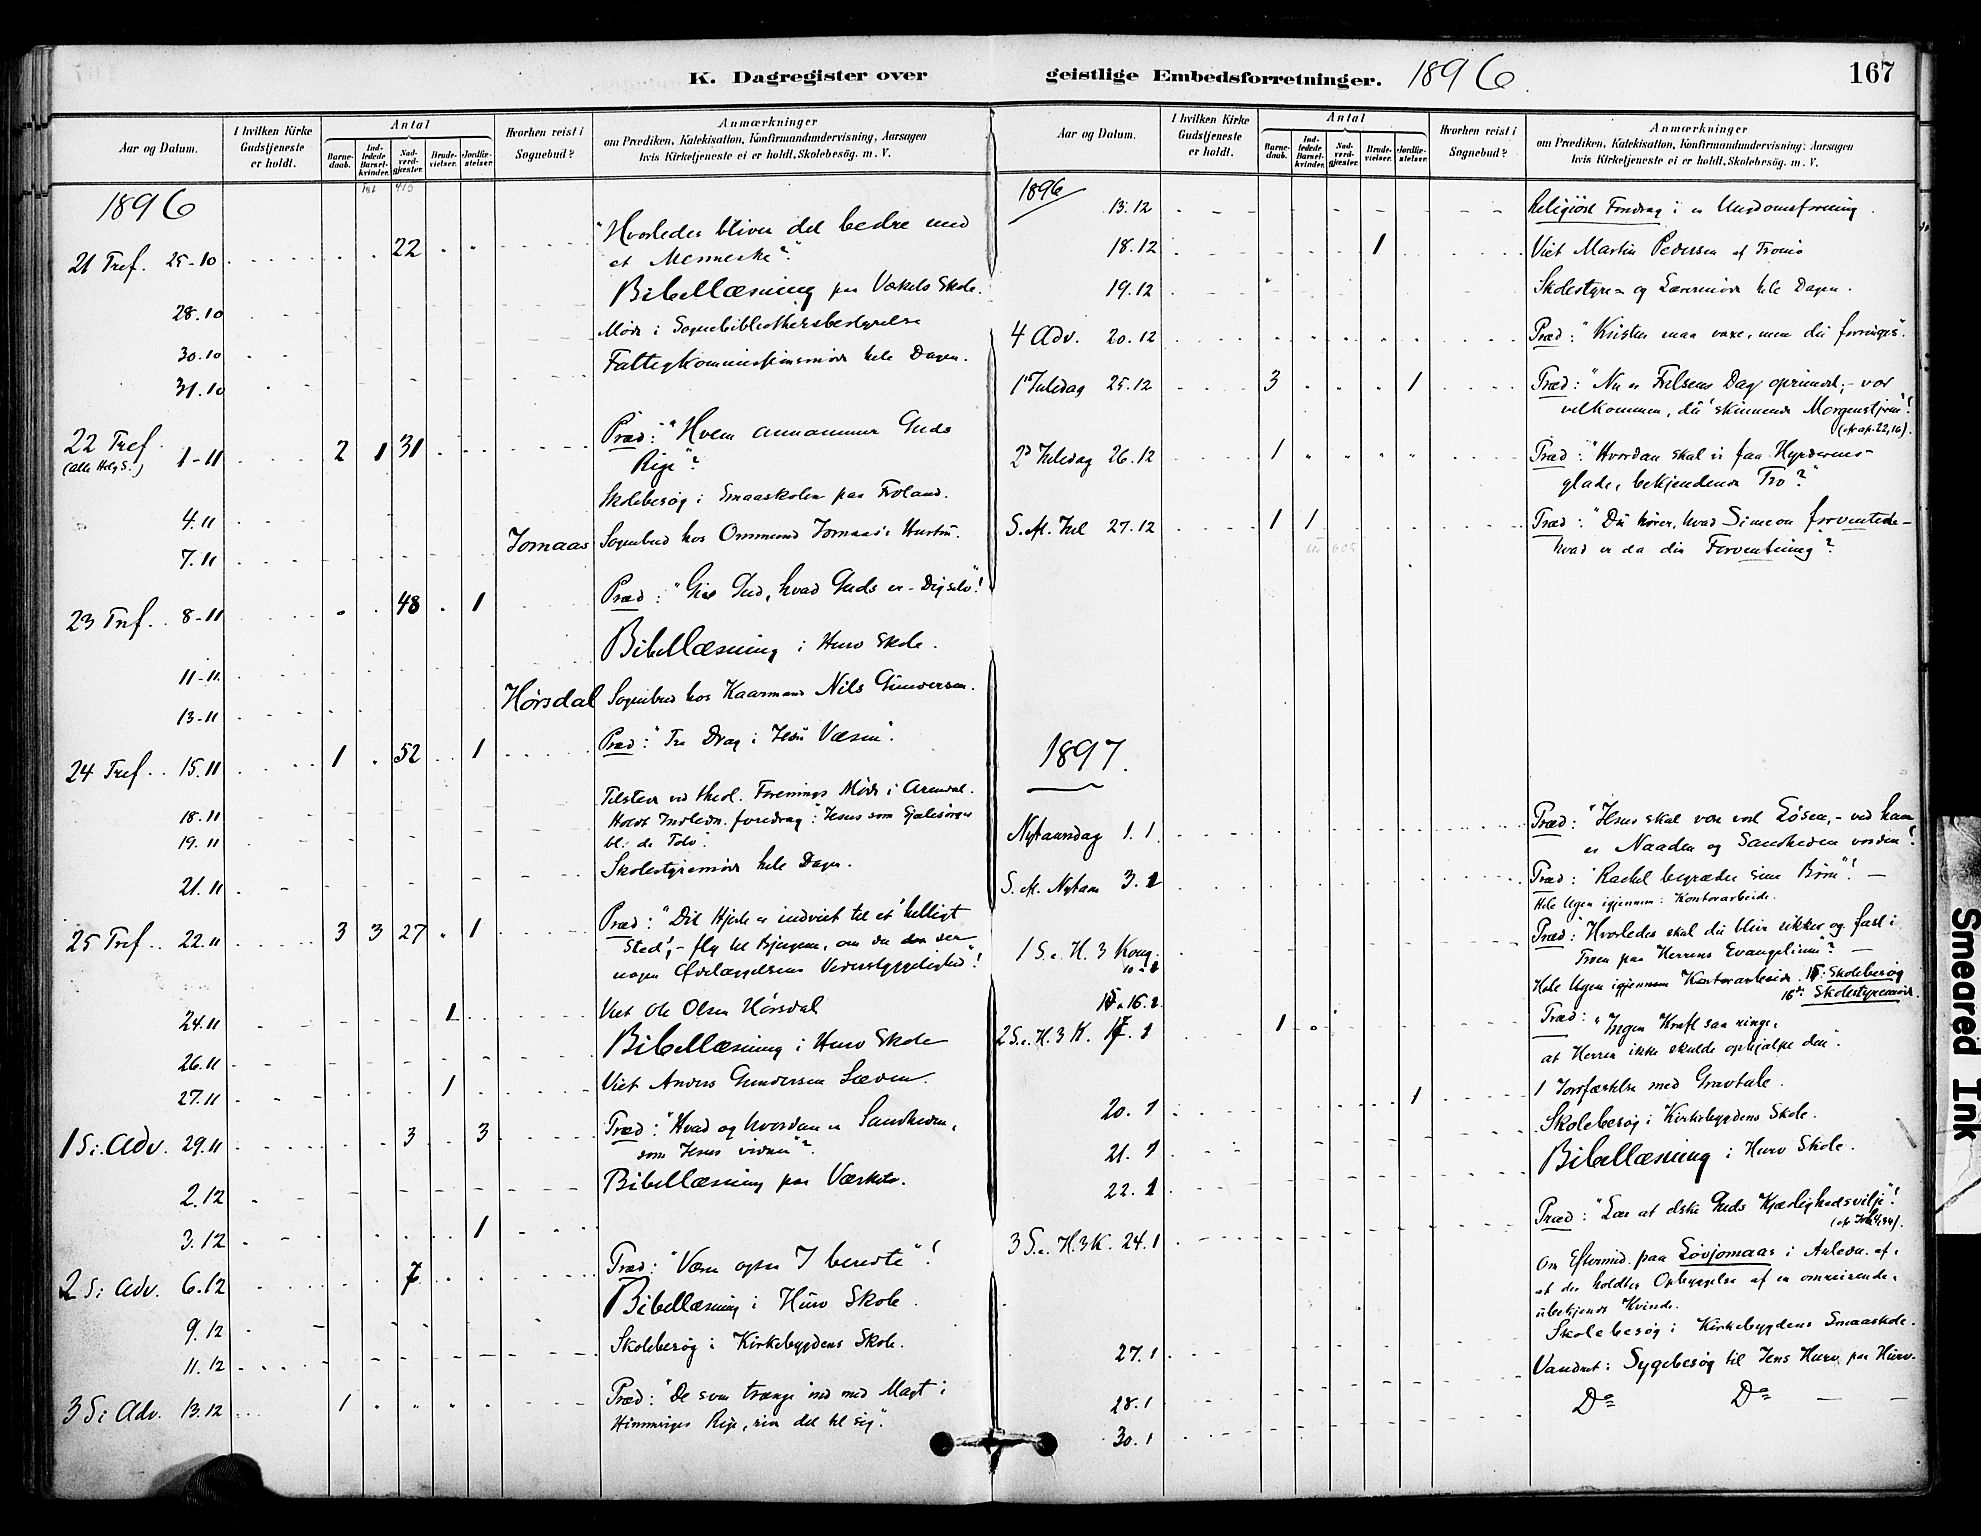 K. Dagregister over geistlige Embedsforretninger. 1896. 167
Aar og Datum.
I hvilken Kirke Gudstjeneste er holdt.
Antal
Barnedaab.
Indledede Barselkvinder.
Nadverdgjæster.
Brudevielser.
Jordfæstelser.
Hvorhen reist i Sognebud?
Anmærkninger
om Prædiken, Katekisation, Konfirmandundervisning, Aarsagen
hvis Kirketjeneste ei er holdt, Skolebesög. m. V.
1896
21 Tref. 25-10 22 "Hvorledes bliver det bedre med
et Menneske"?
28.10 Bibellæsning paa Værkets Skole.
30.10 Møde i Sognebibliotheksbestyrelse
31.10 Fattigkommissionsmøde hele Dagen.
22 Tref. (alle Helg S.) 1-11 2 1 31 Præd: "Hvem annammer Guds
Rige"?
4.11 Skolebesøg i Smaaskolen paa Froland.
7.11 Jomaas Sognebud hos Ommund Jomaas's Hustru.
23 Tref. 8-11 48 1 Præd: "Giv Gud, hvad Guds er - Dig selv"!
11-11 Bibellæsning i Hurv Skole.
13-11 Hørsdal Sognebud hos Kaarmand Nils Gundersen.
24 Tref. 15.11 1 52 1 Præd: "Tre Drag i Jesu Væsen".
18.11 Tilstede ved theol. Forenings Møde i Arendal.
19.11 Holdt Indledn. foredrag: "Jesus som Sjælesørger
bl. de Tolv.
21.11 Skolestyremøde hele Dagen.
25 Tref. 22.11 3 3 27 1 Præd: "Dit Hjerte er indviet til et 'helligt
Sted', - fly til Bjergene, om du der ser
nogen Ødelæggelsens Vederstyggelighed"!
24.11 1 Viet Ole Olsen Hørsdal
26.11 Bibellæsning i Hurv Skole
27.11 1 Viet Anders Gundersen
1 S. i Adv. 29.11 3 3 Præd: "Hvad og hvordan er Sandheden,
som Jesus vidner"?
2.12 Bibellæsning paa Værket.
3.12 1
2 S. i Adv. 6.12 7 Præd: "Være ogsaa I beredte"!
9.12 Bibellæsning i Hurv Skole.
11.12 Skolebesøg i Kirkebygdens Skole.
3 S. i Adv. 13.12 1 Præd: "De som trænge ind med Magt i
Himmeriges Rige, rive det til sig".
Aar og Datum.
I hvilken Kirke Gudstjeneste er holdt.
Antal
Barnedaab.
Indledede Barselkvinder.
Nadverdgjæster.
Brudevielser.
Jordfæstelser.
Hvorhen reist i Sognebud?
Anmærkninger
om Prædiken, Katekisation, Konfirmandundervisning, Aarsagen
hvis Kirketjeneste ei er holdt, Skolebesög. m. V.
1896
13.12 Religiøst Foredrag i en Ungdomsforening.
18.12 1 Viet Martin Pedersen af Tromø
19.12 Skolestyre- og Lærermøde hele Dagen.
4 Adv. 20.12 Præd: "Kristus maa voxe, men du forringes".
1ste Juledag 25.12 3 1 Præd: "Nu er Frelsens Dag oprunden; - vær
velkommen, du skinnende Morgenstjerne"!
(cfr ap. 22,16).
2d Juledag 26.12 1 Præd: "Hvordan skal vi faa Hyrdernes
glade, bekjendende Tro"?
S. M. Jul 27.12 1 1 Præd: "Du hører, hvad Simeon forventede -
hvad er da din Forventning"?
1897.
Nytaarsdag 1.1 Præd: "Jesus skal være vort Løsen, - ved ham
er Naaden og Sandheden vorden"!
S. M. Nytaar 3.1 Præd: "Rachel begræder sine Børn"! -
Hele Ugen igjennem: Kontorarbeide.
1 S. e. H. 3 Kong. 10.1 Præd: Hvorledes skal du blive sikker og fast i
Troen paa Herrens Evangelium"? -
15. 16.1 Hele Ugen igjennem Kontorarbeide. 15: Skolebesøg
16de: Skolestyremøde.
2 S. e. H. 3 K. 17.1 1 Præd: "Ingen Kraft saa ringe,
at Herren ikke skulde ophjælpe den".
20.1 1 1 Jordfæstelse med Gravtale.
21.1 Skolebesøg i Kirkebygdens Skole.
22.1 Bibellæsning i Hurv Skole.
3 S. e. H. 3 K. 24.1 Præd: "Lær at elske Guds Kjærlighedsvilje"!
(cfr Joh 4,34).
Om Eftermid. paa Løvjomaas i Anledn. af,
at der holdtes Opbyggelse af en omreisende,
ubekjendt Kvinde.
27.1 Skolebesøg i Kirkebygdens Smaaskole.
28.1 Vandret: Sygebesøg til Jens Hurv paa Hurv.
30.1 Do Do - -
Smeared Ink